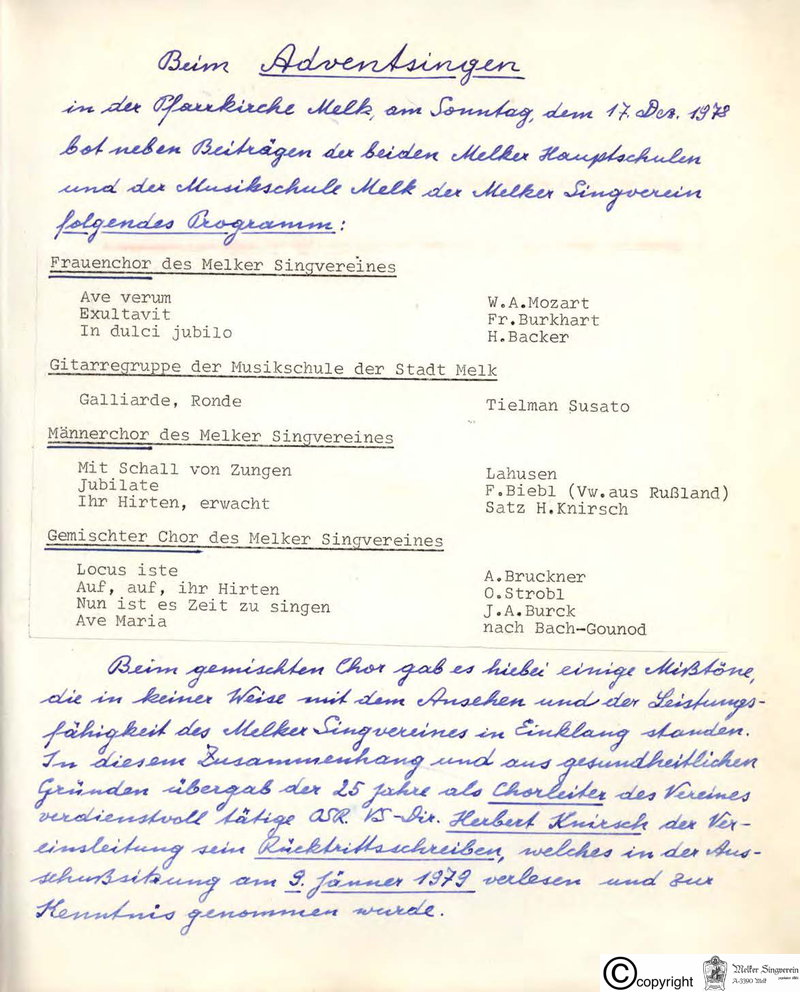 Beim Adventsingen
in der Pfarrkirche Melk, am Sonntag, dem 17. Dez. 1978
bot neben Beiträgen der beiden Melker Hauptschulen
und der Musikschule Melk der Melker Singverein
folgendes Programm:
Frauenchor des Melker Singvereines
Ave verum W.A.Mozart
Exultavit Fr.Burkhart
In dulci jubilo H.Backer
Gitarregruppe der Musikschule der Stadt Melk
Galliarde, Ronde Tielman Susato
Männerchor des Melker Singvereines
Mit Schall von Zungen Lahusen
Jubilate F.Biebl (Vw.aus Rußland)
Ihr Hirten, erwacht Satz H.Knirsch
Gemischter Chor des Melker Singvereines
Locus iste A.Bruckner
Auf, auf, ihr Hirten O.Strobl
Nun ist es Zeit zu singen J.A.Burck
Ave Maria nach Bach-Gounod
Beim gemischten Chor gab es hiebei einige Mißtöne,
die in keiner Weise mit dem Ansehen und der Leistungs-
fähigkeit des Melker Singvereines in Einklang standen.
In diesem Zusammenhang und aus gesundheitlichen
Gründen übergab der 25 Jahre als Chorleiter des Vereines
verdienstvoll tätige OSR. VS-Dir. Herbert Knirsch der Ver-
einsleitung sein Rücktrittsschreiben, welches in der Aus-
schußsitzung am 9. Jänner 1979 verlesen und zur
Kenntnis genommen wurde.
© copyright Melker Singverein
A-3390 Melk